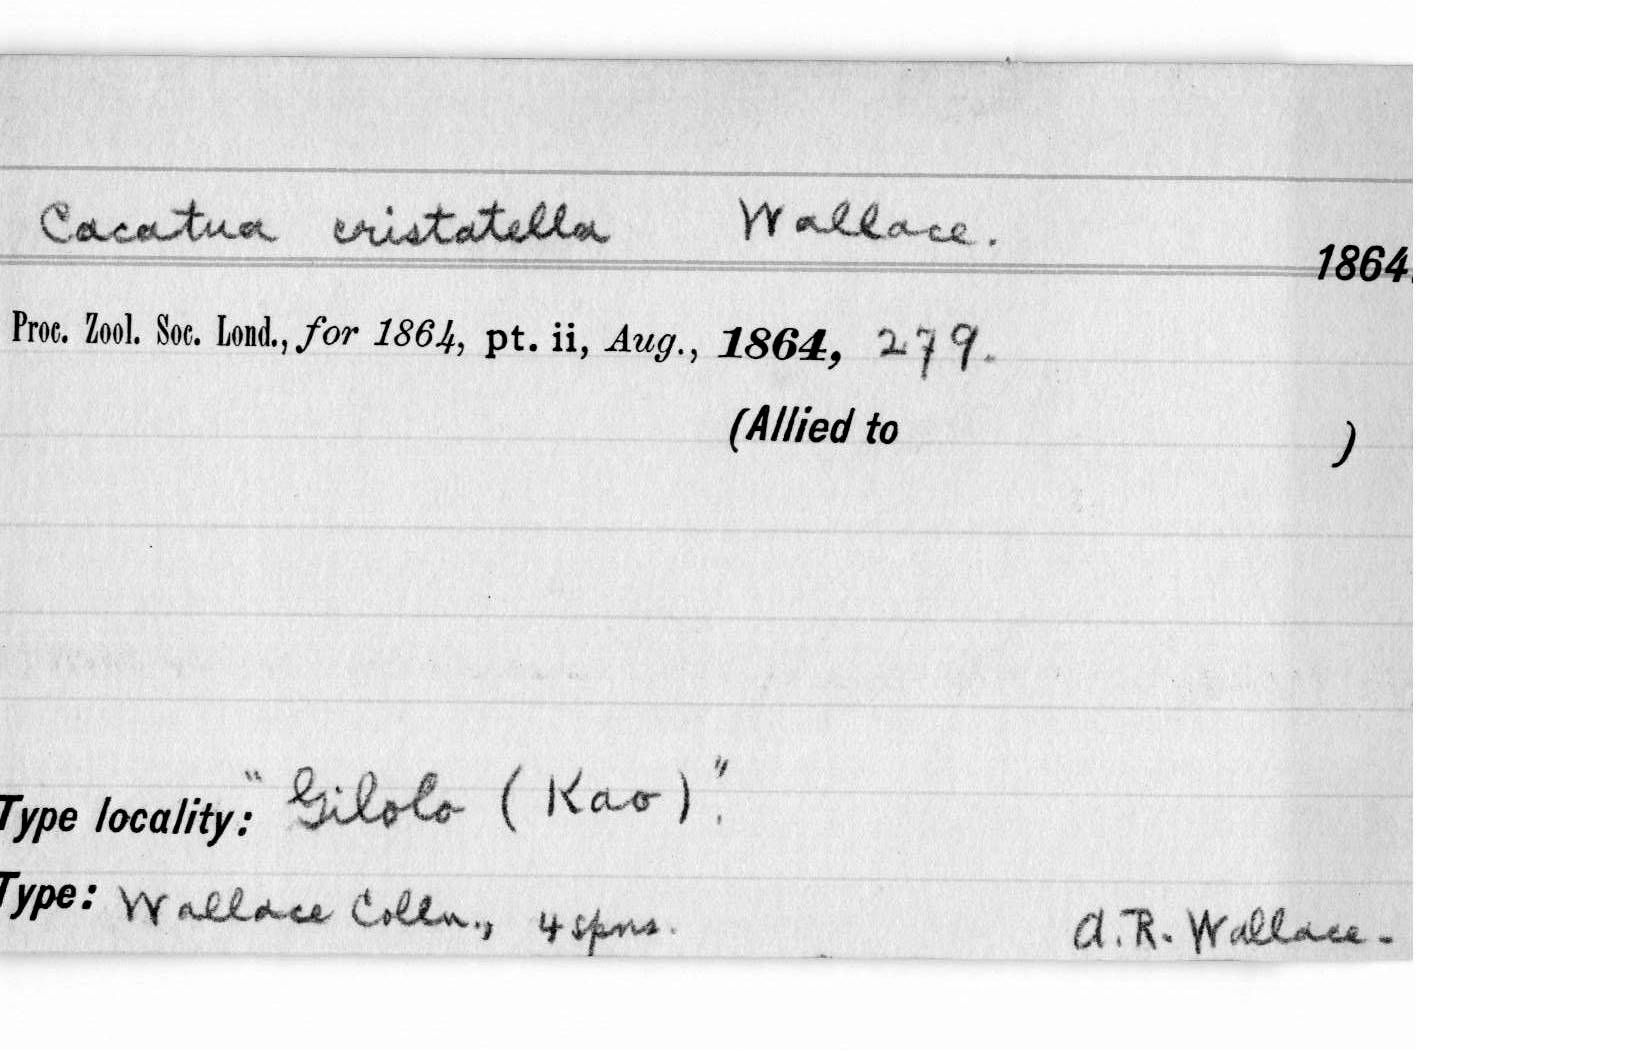 Cacatua cristatella Wallace.
1864.
Proc. Zool. Soc. Lond., for 1864, pt. ii, Aug., 1864, 279.
(Allied to )
Type locality: "Gilolo (Kao)".
Type: Wallace Colln., 4 spns. A. R. Wallace.